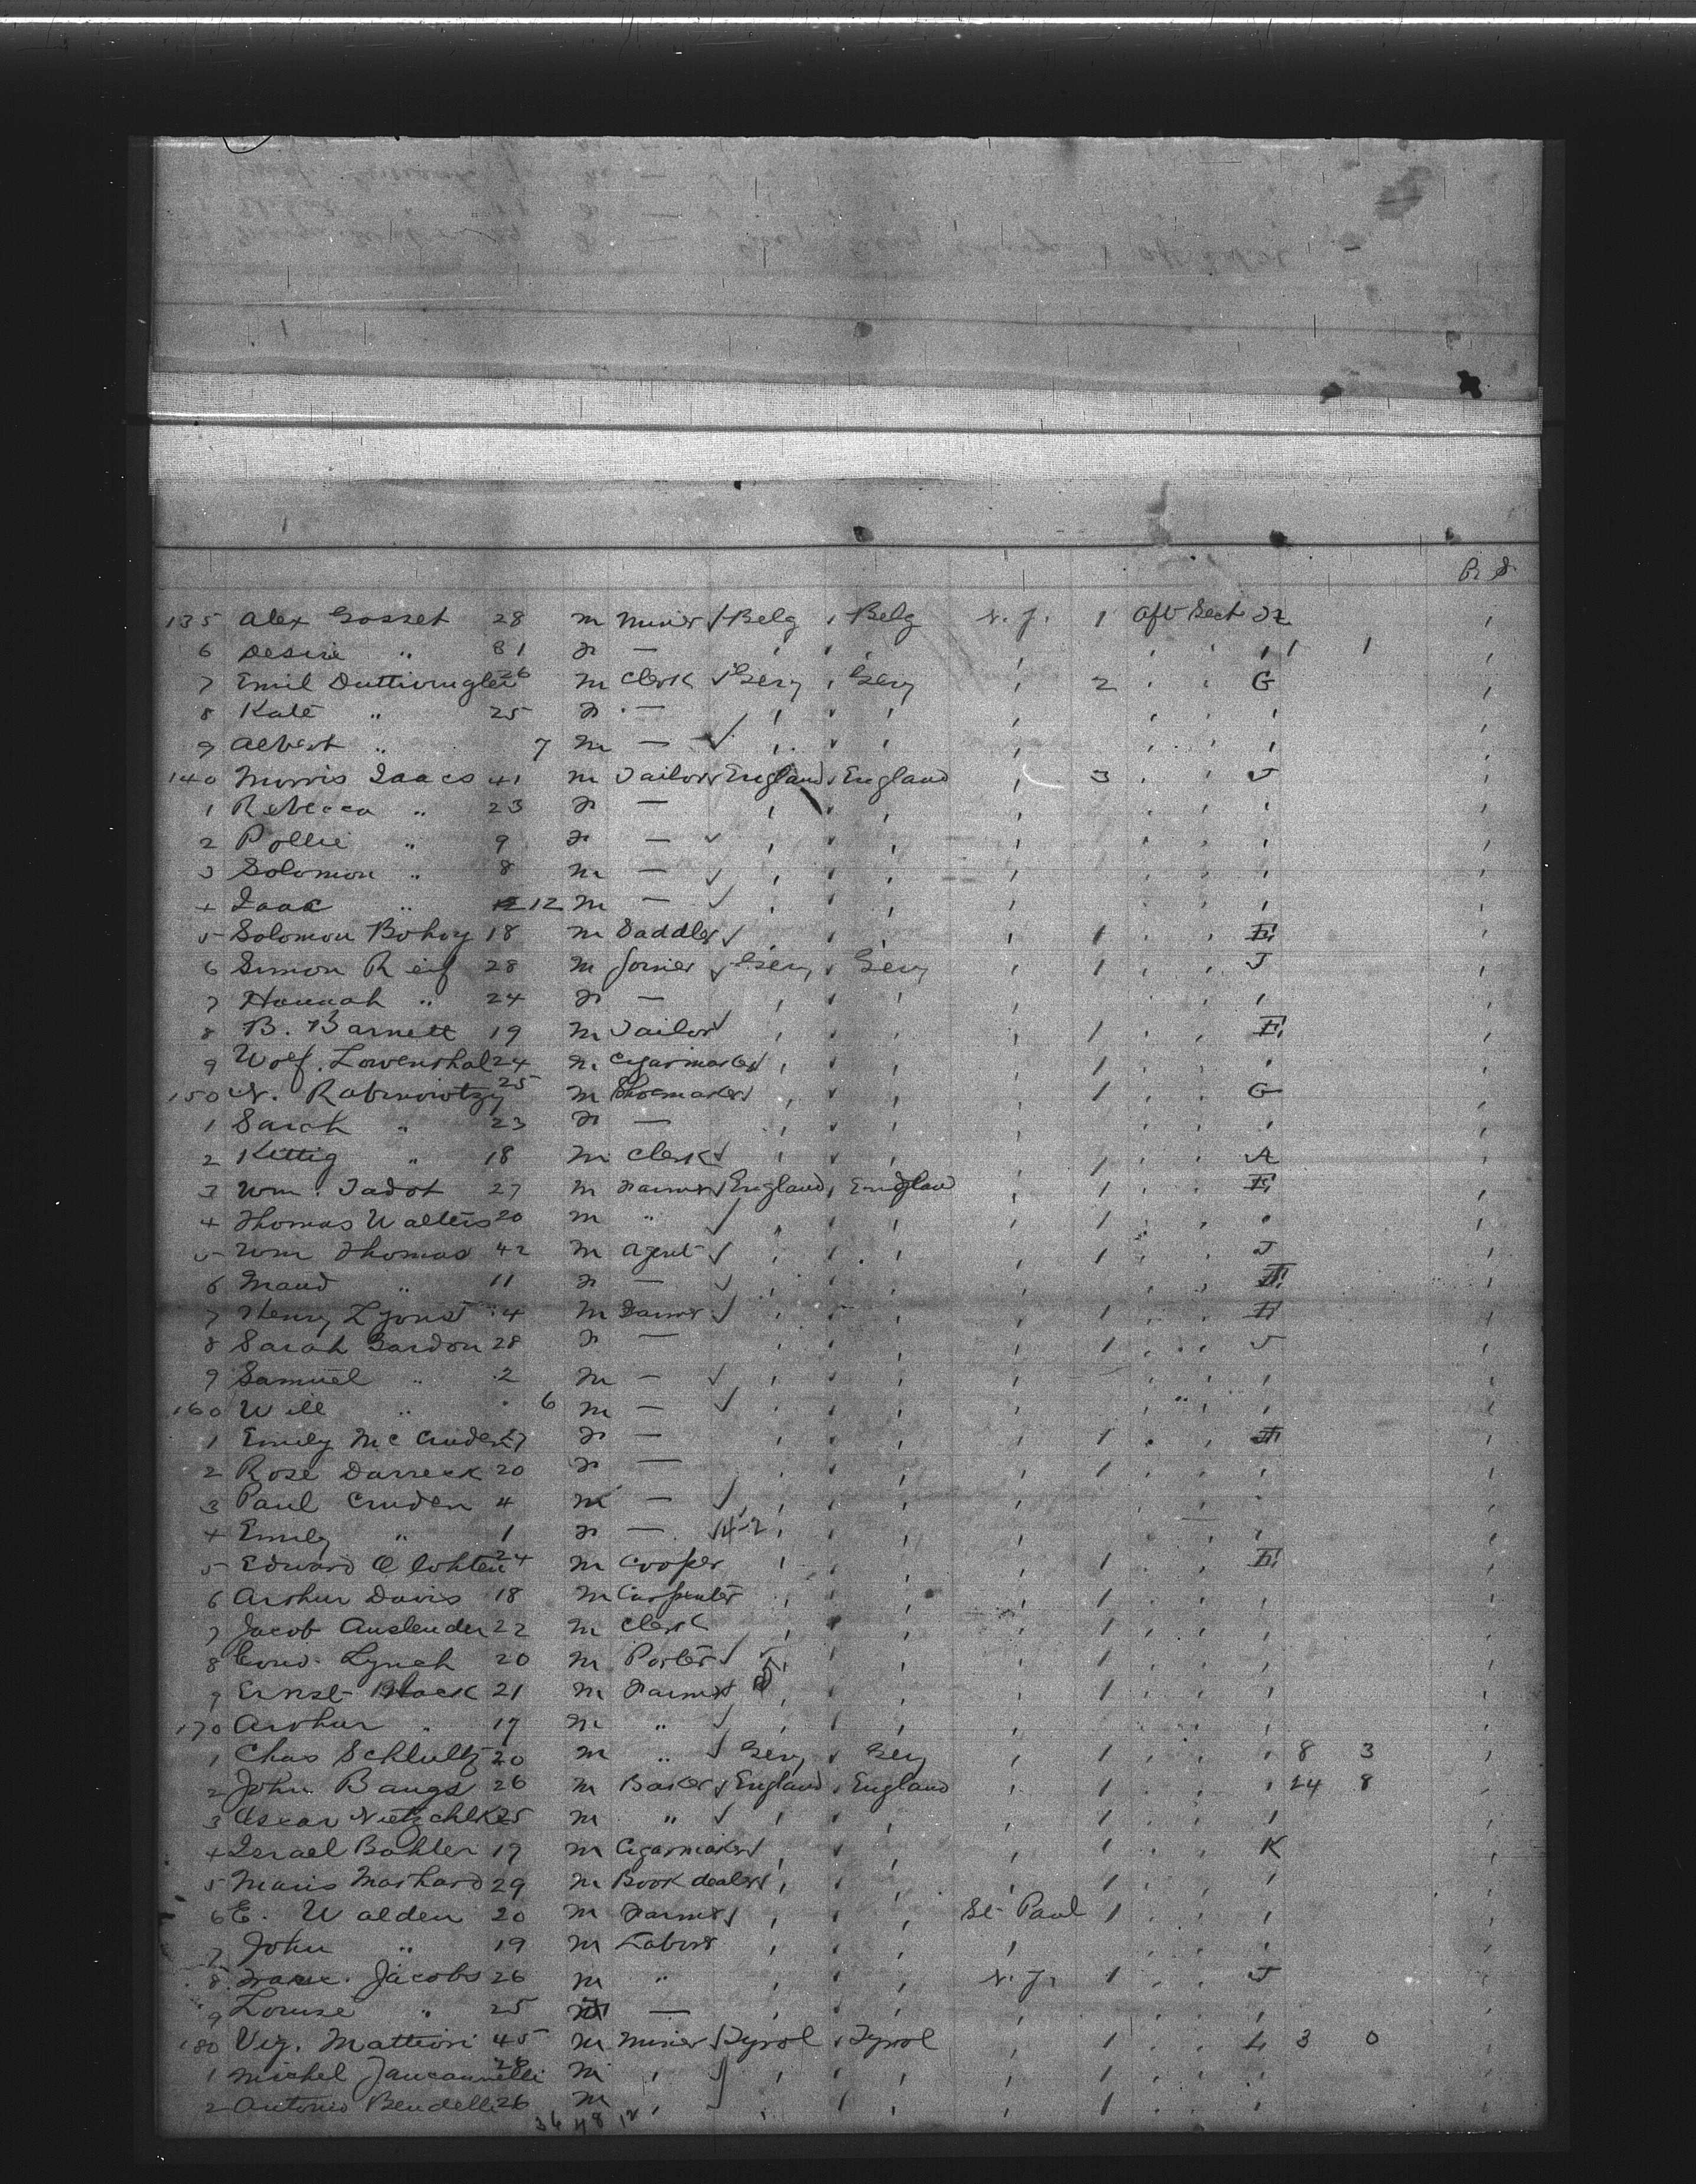 135 Alex Gosset 28 m Miner Belg Belg N.J. 1 Aft Sect
6 Desire " 31 f — 1 1
7 Emil 26 m Clerk Gery Gery 2 G
8 Kate " 25 f —
9 Albert " 7 m —
140 Morris Isaacs 41 m Tailor England England 3 J
1 Rebecca " 23 f —
2 Pollie " 9 f —
3 Solomon " 8 m —
4 Isaac " 12 m —
5 Solomon Bohoy 18 m Saddler E
6 Simon Reif 28 m Joiner Gery Gery 1 J
7 Hannah " 24 f —
8 B. Barnett 19 m Tailor 1 E
9 Wolf. Lowenthal 24 m Cigarmaker 1
150 N. Rabinowitzy 25 m Shoemaker 1 G
1 Sarah " 23 f —
2 Kittig " 18 m Clerk 1 A
3 Wm. Tadot 27 m Farmer England England 1 E
4 Thomas Walters 20 m " 1
5 Wm Thomas 42 m Agent 1 J
6 Maud " 11 f —
7 Henry Lyons 4 m Farmer 1
8 Sarah Gardon 28 f — 1 J
9 Samuel " 2 m —
160 Will " 6 m —
1 Emily Mc Cruden 27 f — 1
2 Rose Darreck 20 f — 1
3 Paul Cruden 4 m —
4 Emily " 1 f — 14-2
5 Edward 24 m Cooper 1 E
6 Arthur Davis 18 m Carpenter 1
7 Jacob Auslender 22 m Clerk 1
8 Edwd. Lynch 20 m Porter 1
9 Ernst Black 21 m Farmer 1
170 Arthur " 17 m "
1 Chas Schlultz 20 m " Gery Gery 1 8 3
2 John Bangs 26 m Baker England England 1 24 8
3 Oscar Nietzchlke 25 m " 1
4 Israel Bohler 19 m Cigarmaker 1 K
5 Maris Marhard 29 m Book dealer 1
6 E. Walden 20 m Farmer St Paul 1
7 John " 19 m Labour
8 Jacobs 26 m " N.J. 1 J
9 Louise " 25 f —
180 Vig. Mattiori 45 m Miner Tyrol Tyrol 1 L 3 0
1 Michel Jancannelli 28 m 1
2 Antonio Bendelli 26 m 1
36 48 12